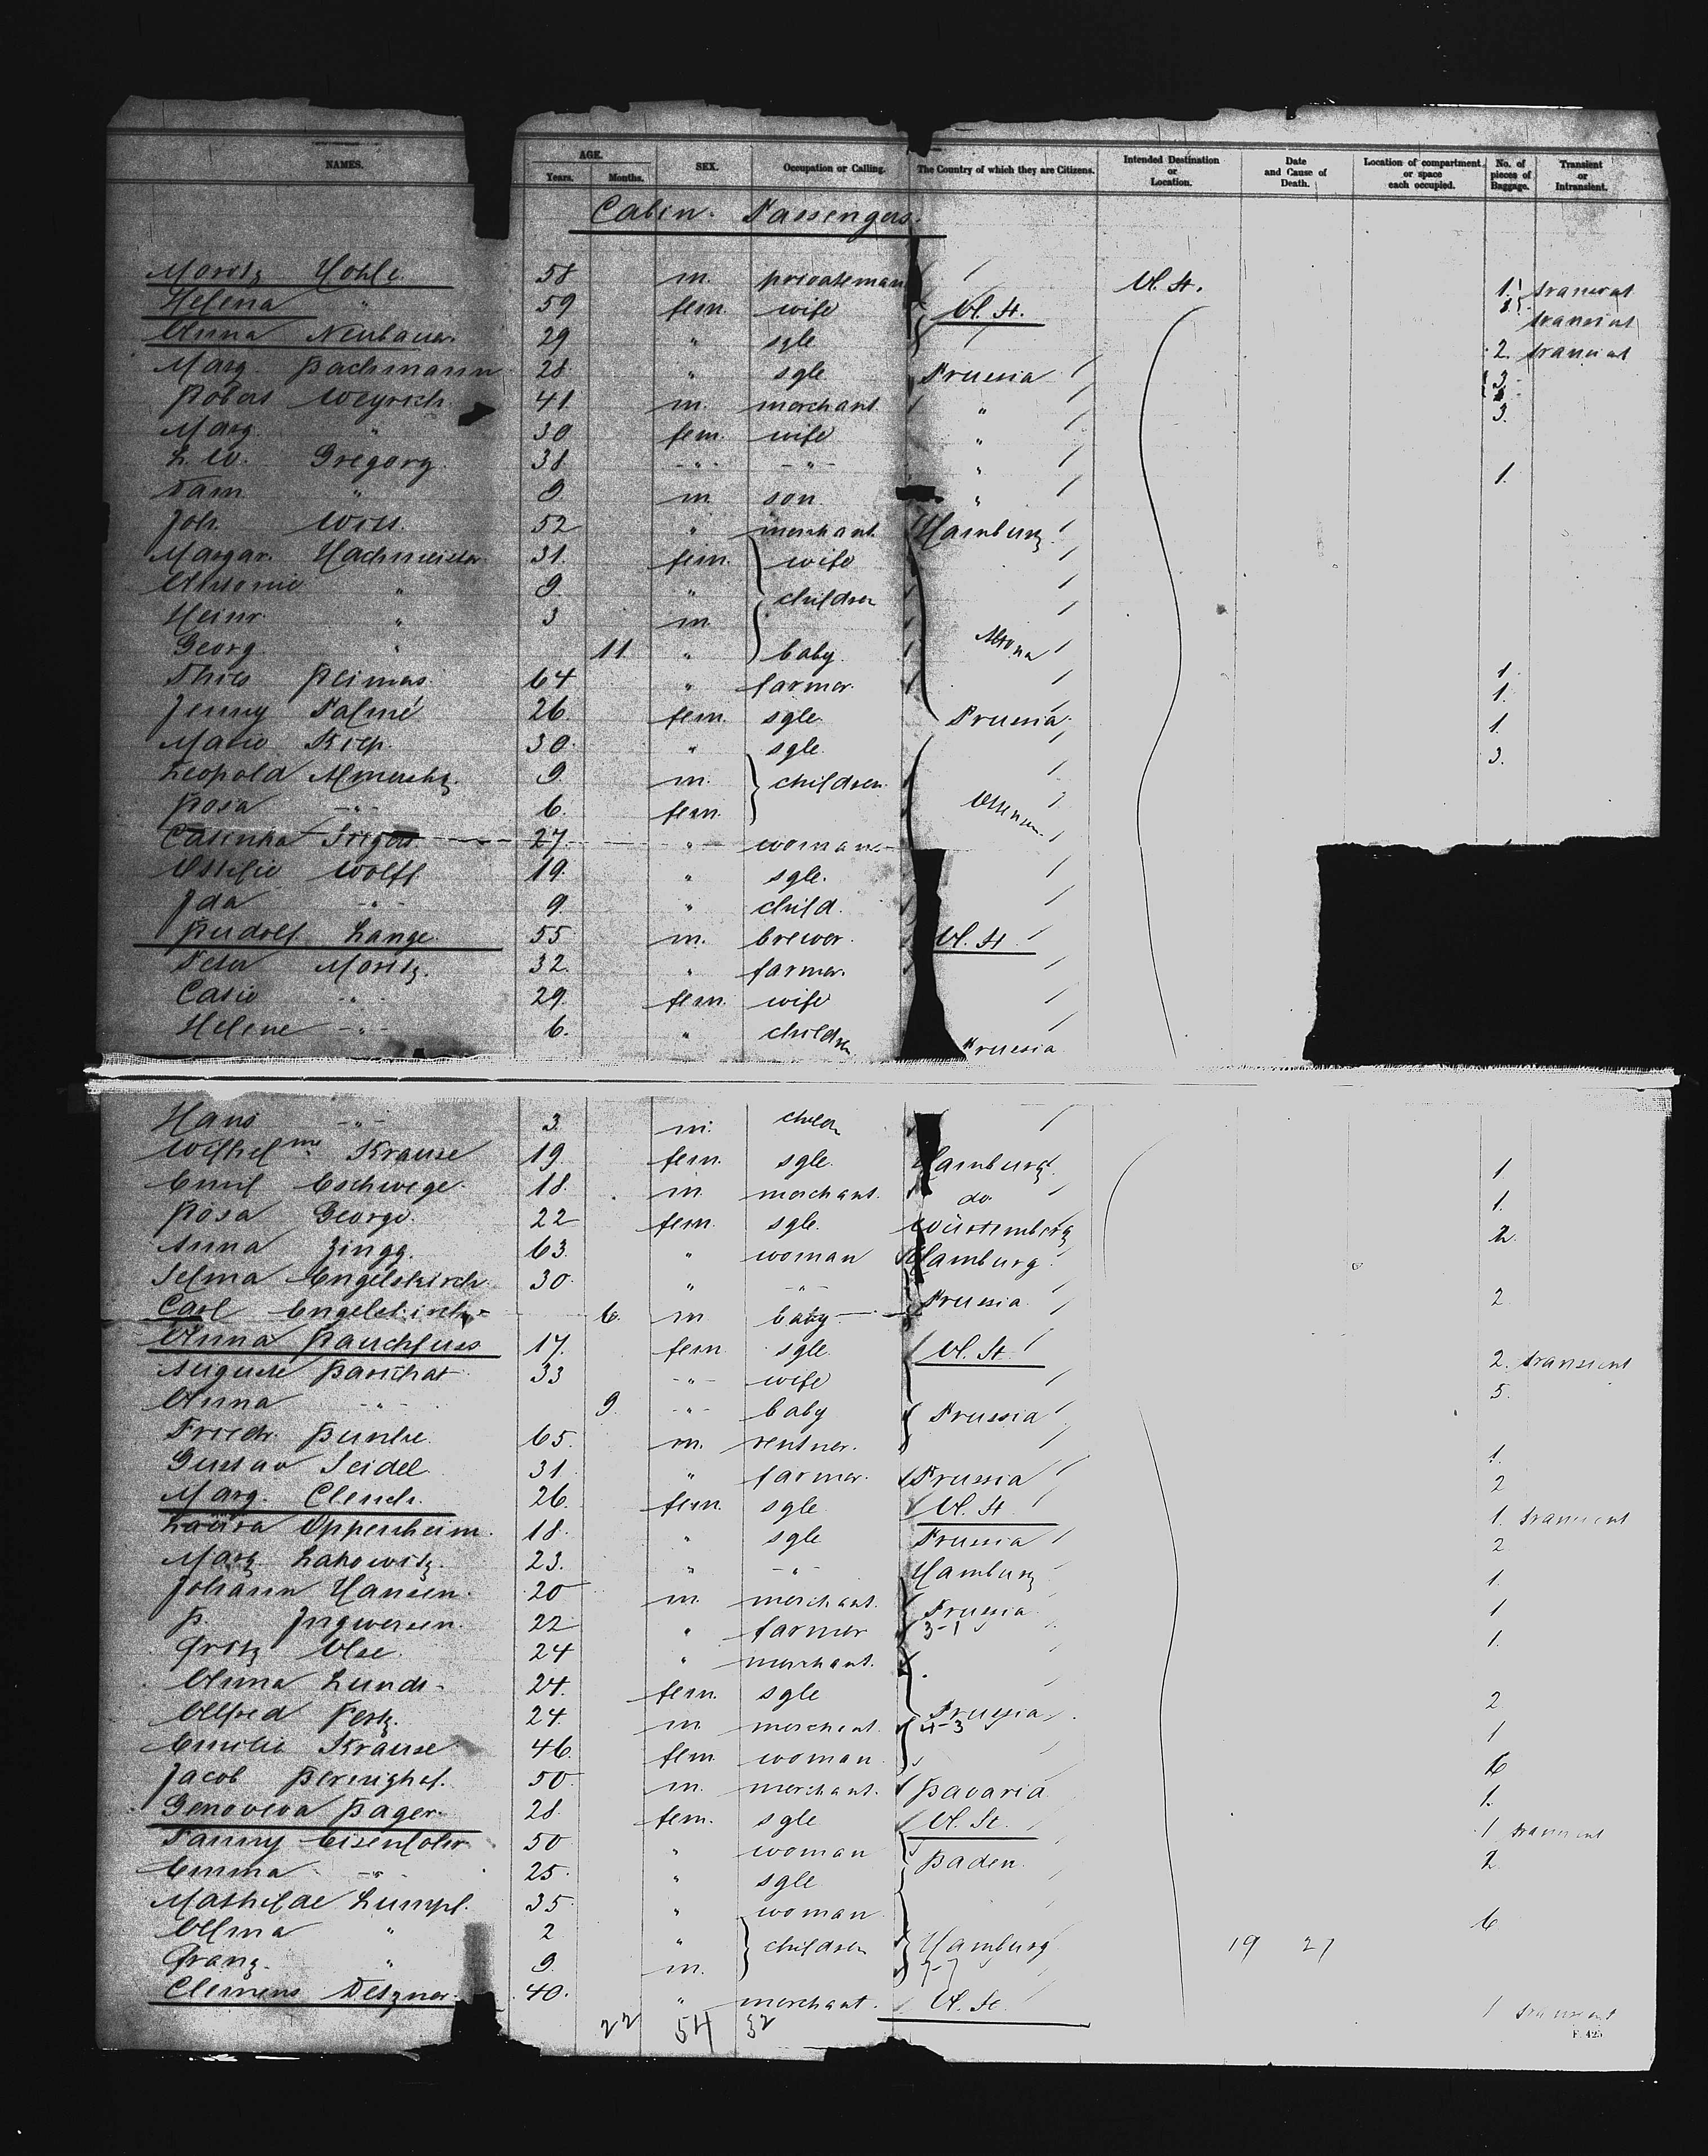 NAMES. AGE. Years. Months. SEX. Occupation or Calling. The Country of which they are Citizens. Intended Destination or Location. Date and Cause of Death. Location of compartment or space each occupied. No. of pieces of Baggage. Transient or Intransient.
Cabin Passengers.
Moritz Hohle 58 m. privateman U. St. 1. transient
Helena " 59 fem. wife U. St. 1. transient
Anna Neubauer 29 " sgle 2. transient
Marg. Bachmann 28 " sgle Prussia 3
Robert Weyrich 41 m. merchant " 3.
Marg. " 30 fem. wife "
L. W. Gregory. 38 -"- -"- " 1.
Sam " 9 m son "
Joh. Witt. 52 " merchant Hamburg
Margar. Hachmeister 31. fem. wife
Antonie " 9. " children
Heinr. " 3 m
Georg " 11 " baby Altona
Thies Reimers. 64 " farmer. 1.
Jenny Palmé 26 fem. sgle. Prussia. 1.
Marie 30. " sgle. 3.
Leopold 9. m. children
Rosa -"- 6. fem.
27 " woman
Ottilie Wolff 19. " sgle.
Ida -"- 9. " child.
Rudolf Lange 55 m. brewer. U. St
Peter Moritz. 32. " farmer.
Catie -"- 29. fem. wife
Helene -"- 6. " children Prussia
Hans -"- 3. m. children
Wilhelm^ne Krause 19. fem. sgle. Hamburg. 1.
Emil Eschwege. 18. m. merchant. do 1.
Rosa George. 22 fem. sgle. Württemberg 2.
Anna Zingg. 63. " woman Hamburg.
Selma Engelskirch. 30. " -"- Prussia 2
Carl Engelskirch 6. m baby
Anna Rauchfuss 17. fem sgle. U. St. 2. transient
Auguste Barichat 33 -"- wife 5.
Anna -"- 9. -"- baby Prussia
Friedr. Bunke. 65. m. rentner. 1.
Gustav Seidel 31 " farmer. Prussia 2
Marg. Clench. 26. fem. sgle U. St 1. transient
Laura Oppenheim. 18. " sgle Prussia 2
Marg Lakowitz. 23. " -"- Hamburg 1.
Johann Hansen. 20 m merchant. Prussia 1
P. Ingwersen. 22 " farmer 3-1 1.
Fritz 24 " merchant.
Anna Lundt 24. fem. sgle Prussia 2
Alfred 24. m merchant 4-3 1
Emilie Krause 46. fem woman. 6
Jacob Beringhof. 50. m. merchant. Bavaria 1.
Genoveva Bager. 28. fem. sgle U. St. 1 transient
Fanny Eisenlohr. 50 " woman Baden. 2.
Emma -"- 25. " sgle
Mathilde 35 " woman 6
Alma " 2 " children Hamburg 19 27
Franz. " 9. m. 7-7
Clemens Petzner. 40. " merchant. U. St. 1 transient
22 54 32
F. 425